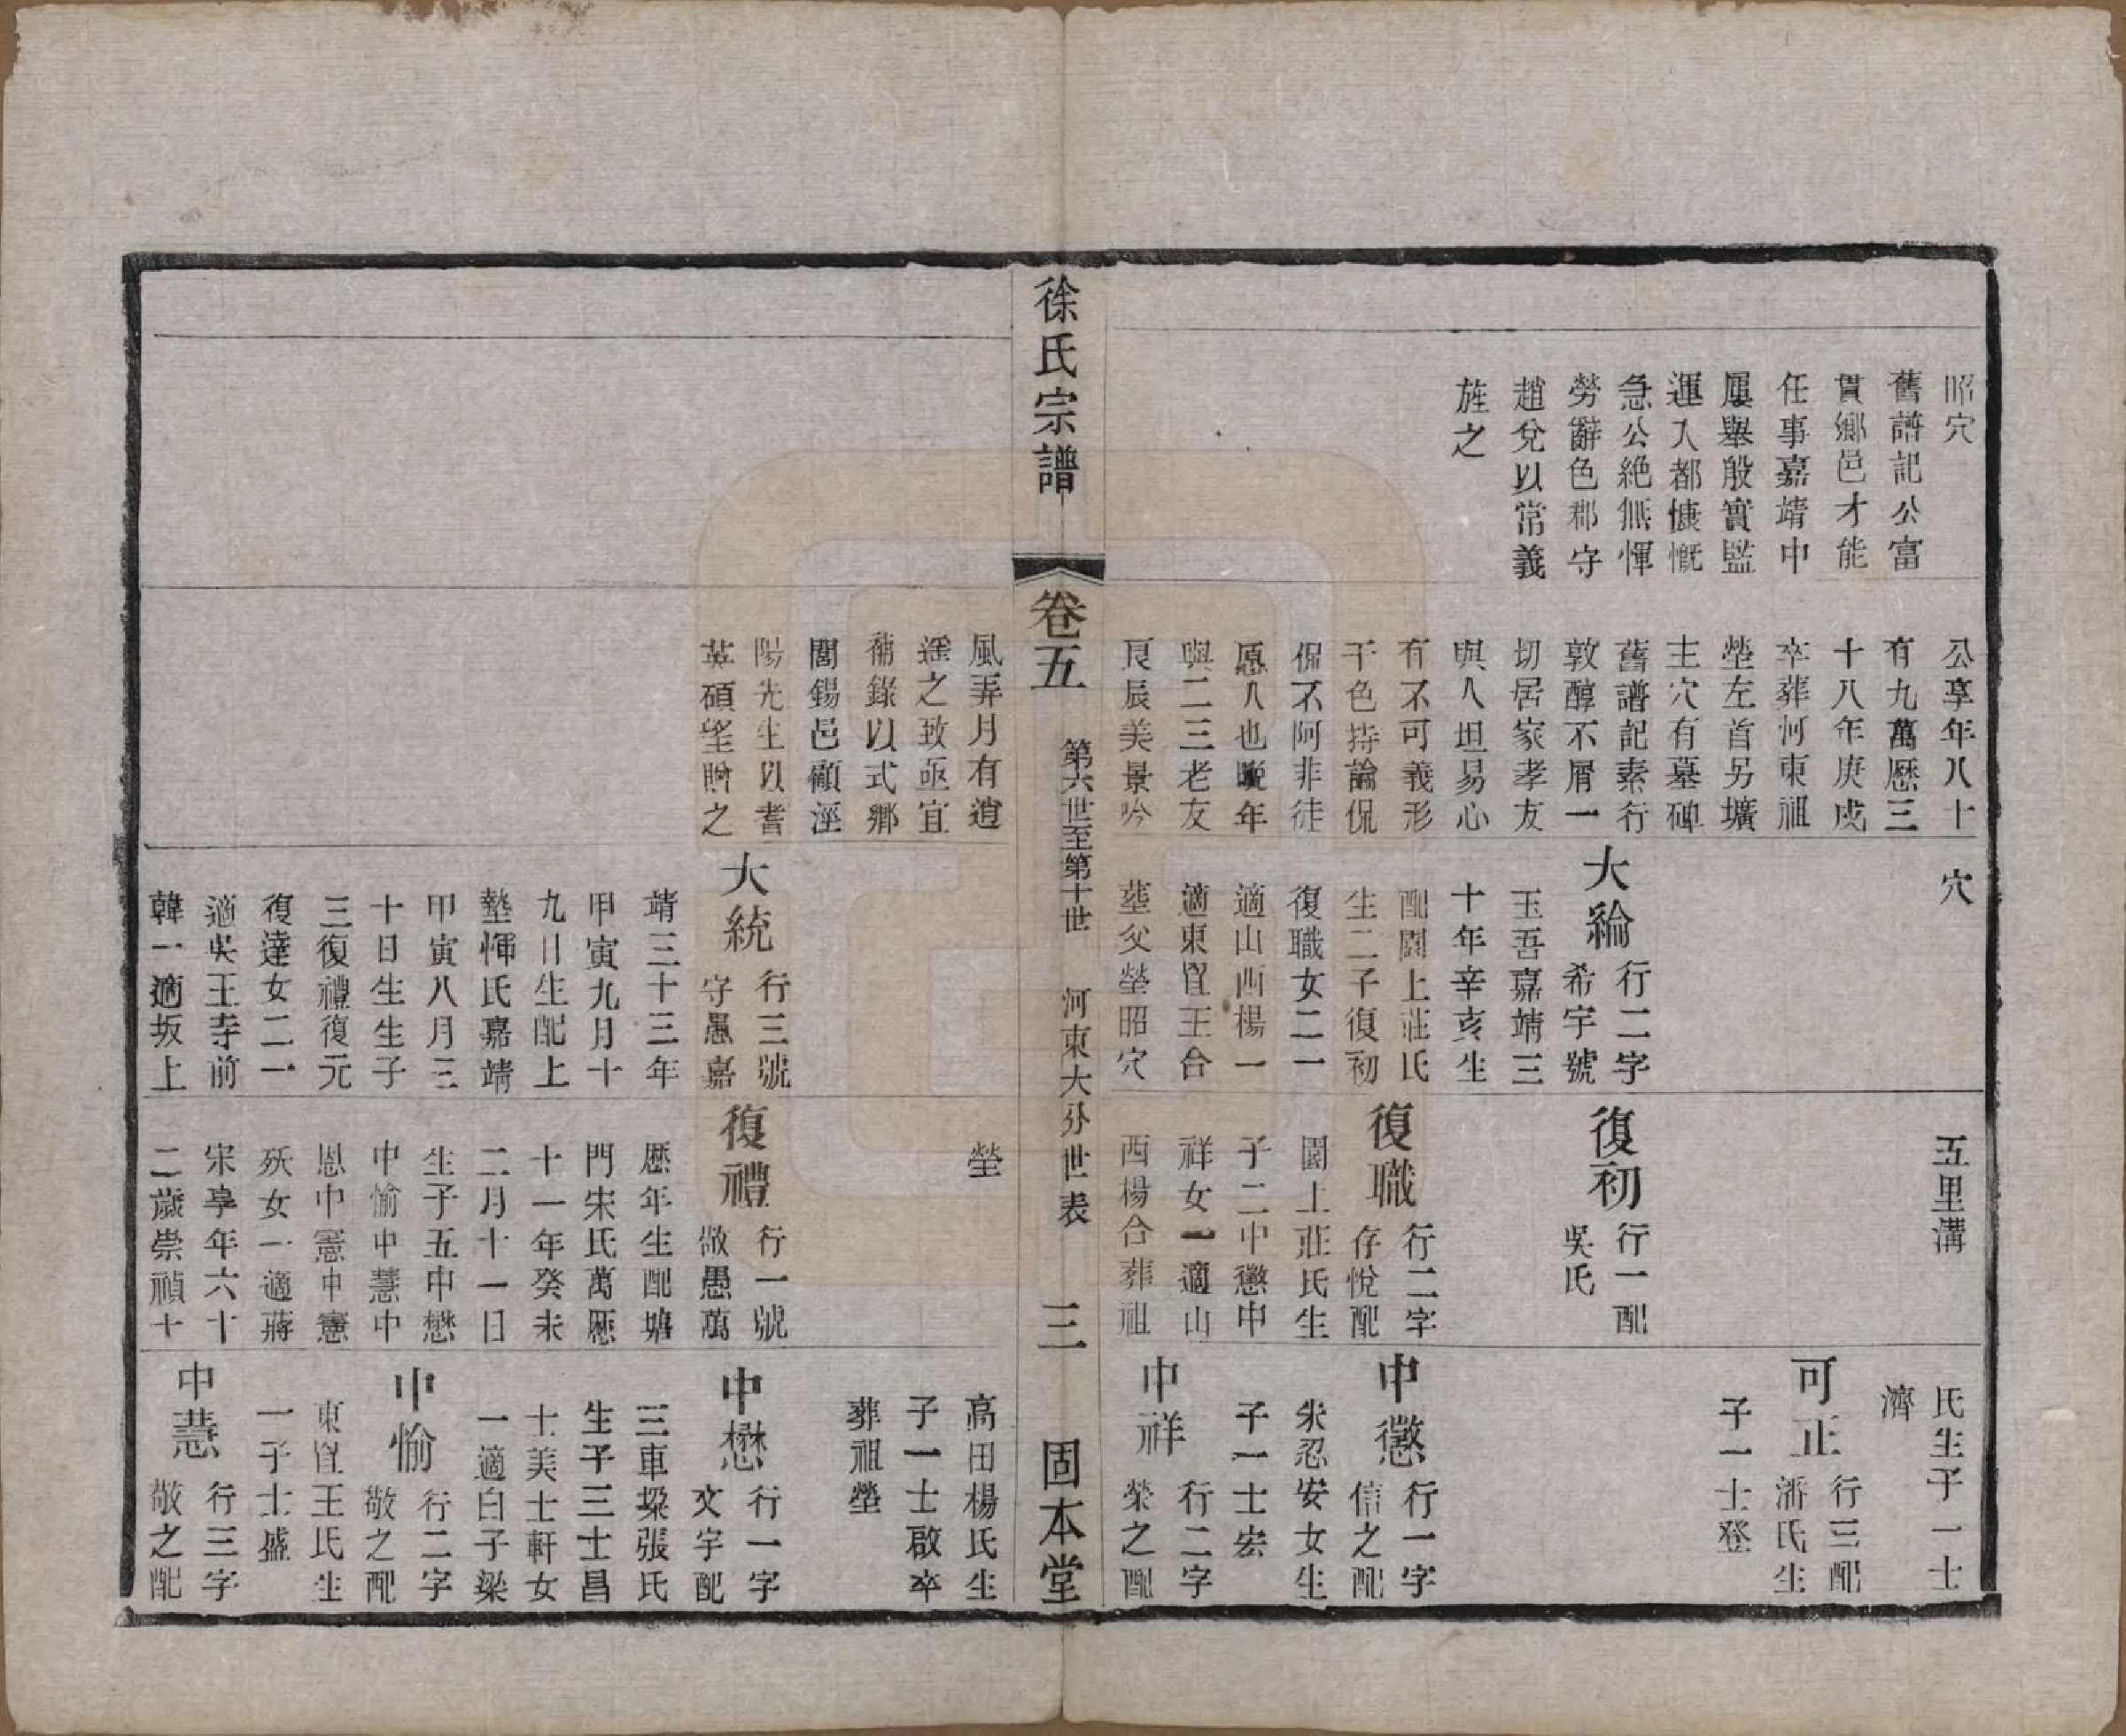 昭穴
舊譜記公富
貫鄉邑才能
任事嘉靖中
屢舉殷實監
運入都慷慨
急公絕無惲
勞辭色郡守
趙兌以常義
旌之
公享年八十
有九萬厯三
十八年庚戌
卒葬河東祖
塋左首另壙
主穴有墓碑
舊譜記素行
敦醇不屑一
切居家孝友
與人坦易心
有不可義形
于色持論侃
侃不阿非徒
愿人也晚年
與二三老友
良辰美景吟
穴
大綸
行二字
希宇號
玉吾嘉靖三
十年辛亥生
配闗上莊氏
生二子復初
復職女二一
適山西楊一
適東𦊰王合
塟父塋昭穴
五里溝
復初
行一配
吳氏
復職
行二字
存悅配
園上莊氏生
子二中懲中
祥女一適山
西楊合葬祖
氏生子一士
濟
可正
行三配
潘氏生
子一士登
中懲
行一字
信之配
朱忍安女生
子一士宏
中祥
行二字
榮之配
徐氏宗譜
卷五
第六世至第十世
河東大分世表
三
固本堂
風弄月有逍
遙之致亟宜
補錄以式鄉
閭錫邑顧涇
陽先生以耆
英碩望贈之
大統
行三號
守愚嘉
靖三十三年
甲寅九月十
九日生配上
墊惲氏嘉靖
甲寅八月三
十日生生子
三復禮復元
復達女二一
適吳王寺前
韓一適坂上
塋
復禮
行一號
儆愚萬
厯年生配塘
門宋氏萬厯
十一年癸未
二月十一日
生子五中懋
中愉中慧中
恩中憲中憲
殀女一適蔣
宋享年六十
二歲崇禎十
高田楊氏生
子一士啟卒
葬祖塋
中懋
行一字
文宇配
三車梁張氏
生子三士昌
士美士軒女
一適白子梁
中愉
行二字
敬之配
東𦊰王氏生
一子士盛
中慧
行三字
敬之配